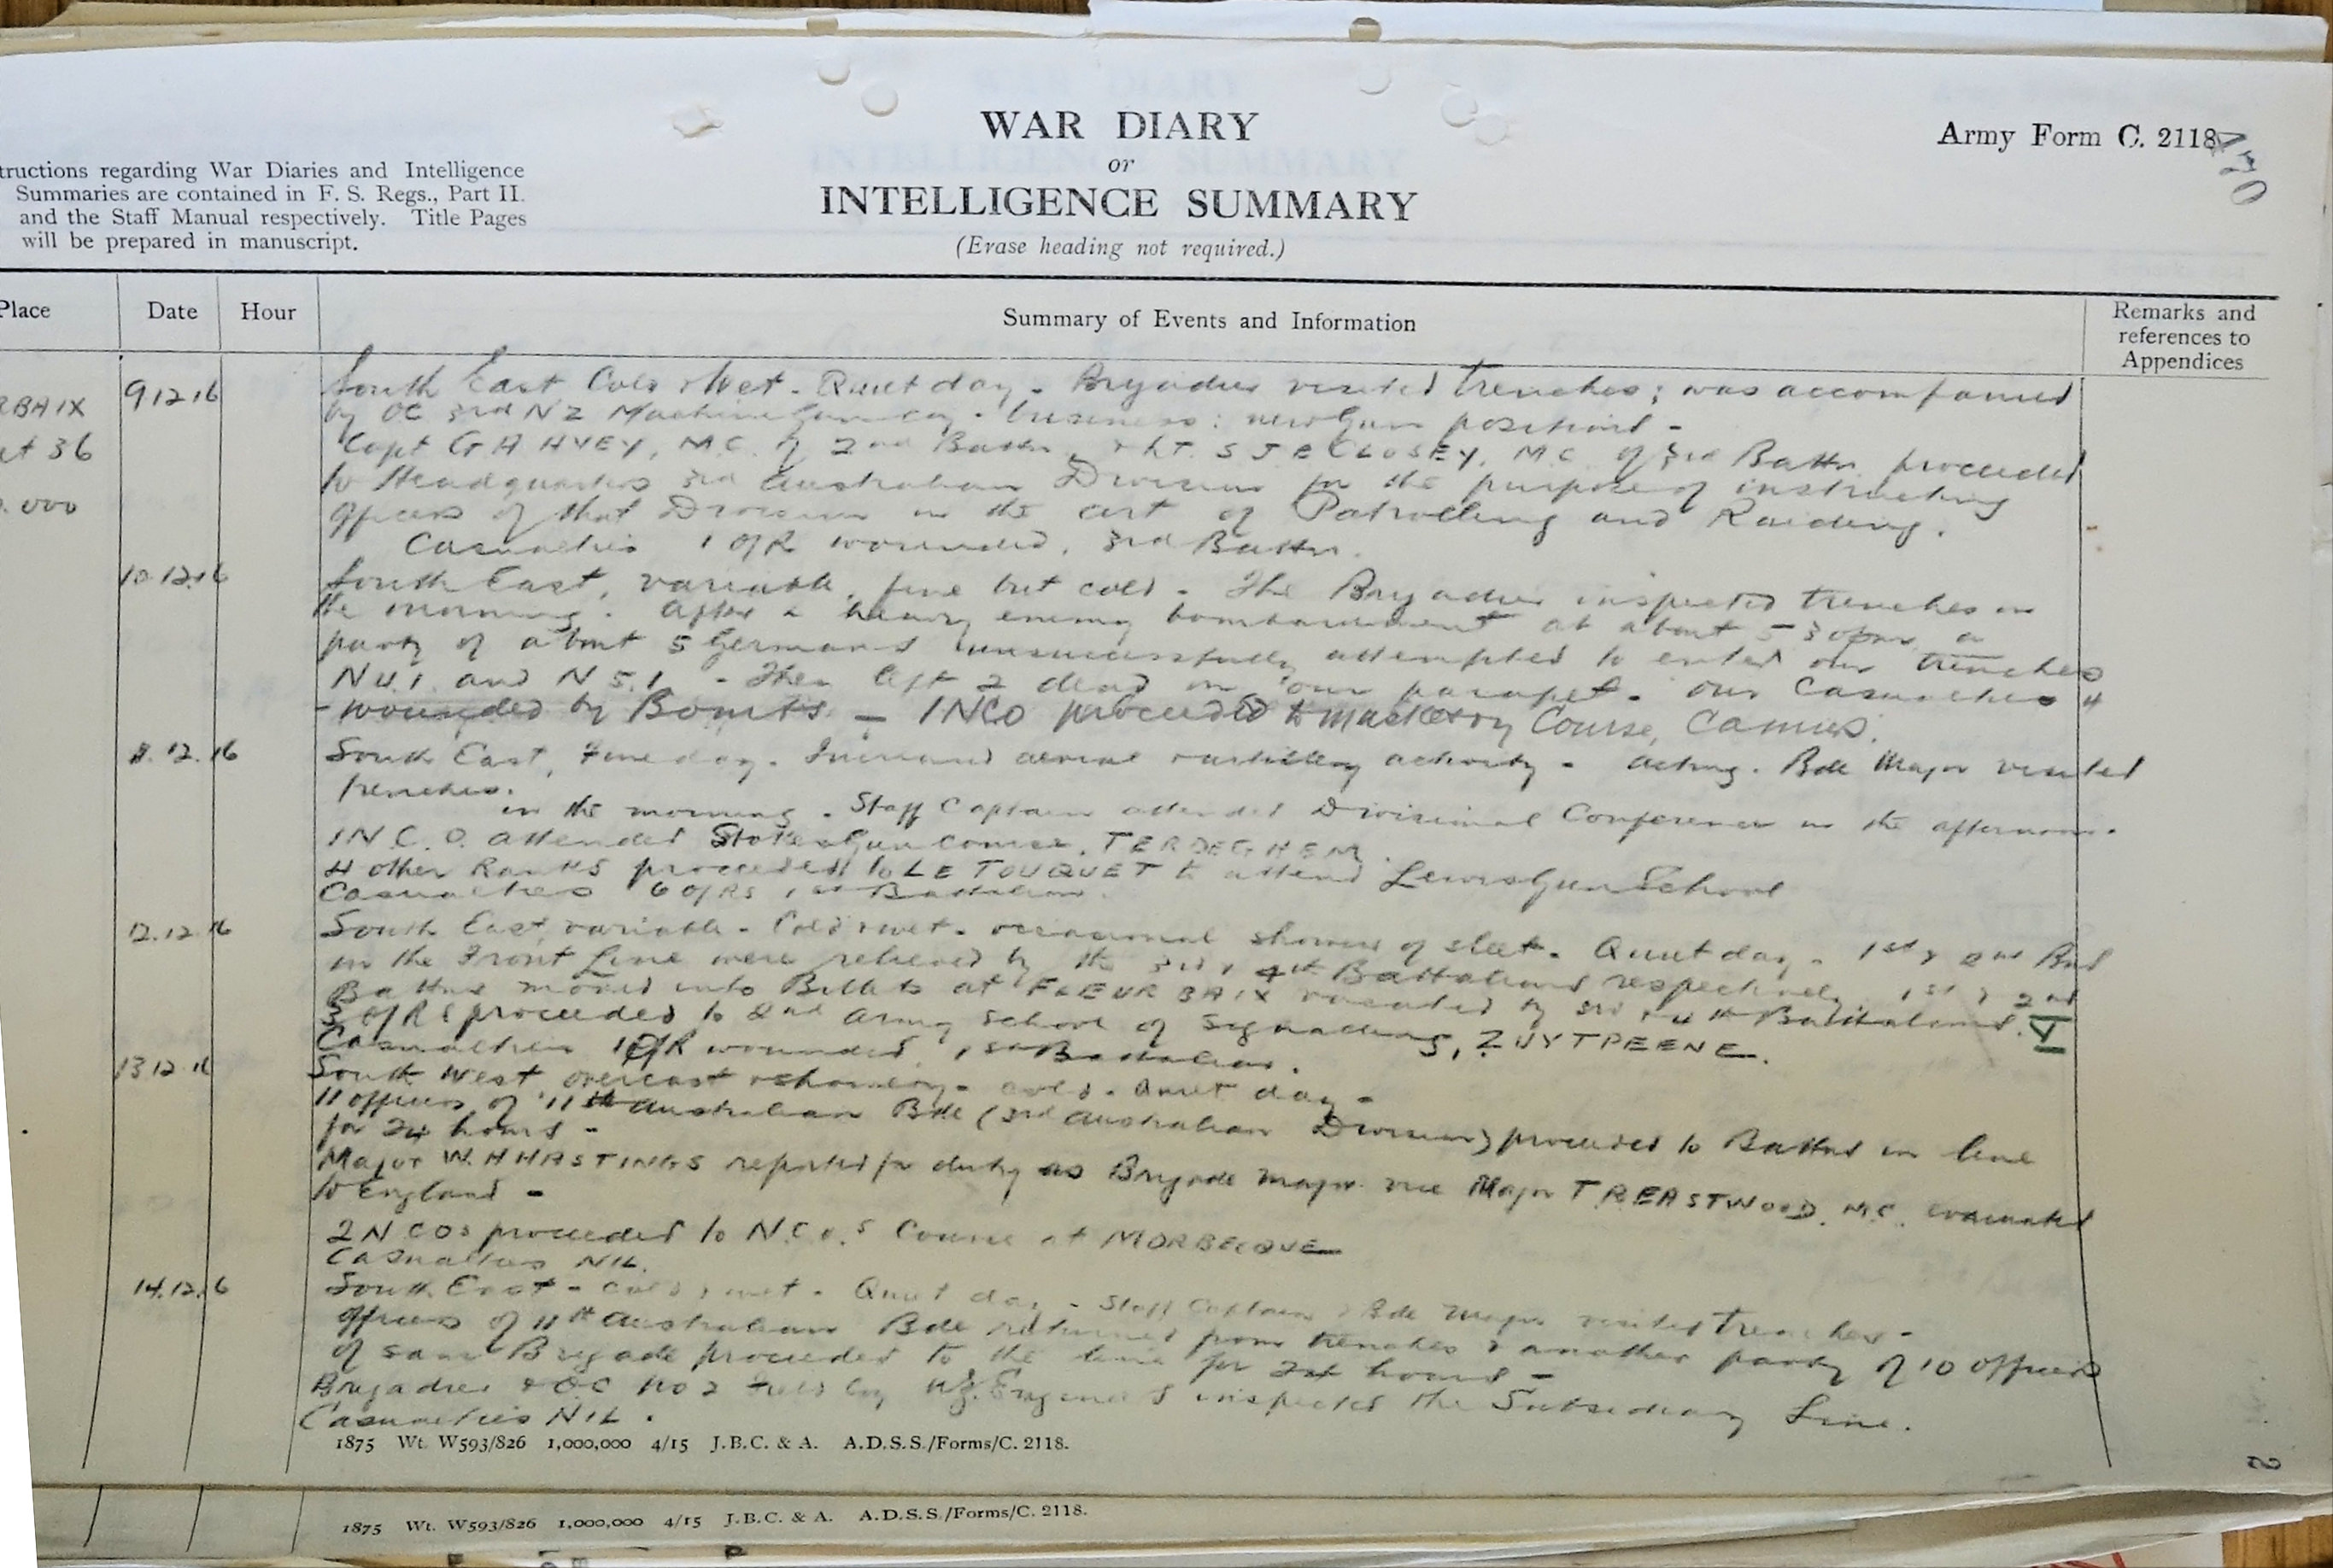 WAR DIARY
or
INTELLIGENCE SUMMARY
(Erase heading not required.)
Army Form C. 2118
tructions regarding War Diaries and Intelligence
Summaries are contained in F. S. Regs., Part II.
and the Staff Manual respectively. Title Pages
will be prepared in manuscript.
Place Date Hour Summary of Events and Information Remarks and
references to
Appendices
RBAIX 9 12 16 South East Cold & Wet - Quiet day - Brigadier visited trenches; was accompanied
by OC 3rd NZ Machine Gun Coy - business: new Gun positions -
et 36 Capt G A H VEY, M.C. of 2nd Battn, & Lt. S J E CLOSEY, M.C. of 3rd Battn proceeded
to Headquarters 3rd Australian Division for the purpose of instructing
.000 officers of that Division in the art of Patrolling and Raiding.
Casualties 1 O/R wounded, 3rd Battn.
10.12.16 South East, variable, fine but cold - The Brigadier inspected trenches in
the morning. After a heavy enemy bombardment at about 5 30 pm a
party of about 5 Germans unsuccessfully attempted to enter our trenches
N 4.1. and N 5.1. - They left 2 dead on our parapet. Our Casualties 4
wounded by Bombs - 1 NCO proceeded to Musketry Course, Camiers.
11.12.16 South East, Fine day. Increased aerial & artillery activity - Acting. Bde Major visited
trenches.
in the morning. Staff Captain attended Divisional Conference in the afternoon.
1 N.C.O. attended Stokes Gun Course, TERDEGHEM.
4 other Ranks proceeded to LE TOUQUET to attend Lewis Gun School
Casualties 6 O/Rs 1st Battalion.
12.12.16 South East, variable - Cold & wet - occasional showers of sleet - Quiet day - 1st & 2nd
in the Front Line were relieved by the 3rd & 4th Battalions respectively. 1st & 2nd
Battns moved into Billets at FLEURBAIX vacated by 3rd & 4th Battalions. V
3 O/Rs proceeded to 2nd Army School of Signalling, ZUYTPEENE.
Casualties 1 O/R wounded, 1st Battalion.
13 12 16 South West, overcast & showery - cold - Quiet day -
11 officers of 11th Australian Bde (3rd Australian Division) proceeded to Battns in line
for 24 hours -
Major W. H HASTINGS reported for duty as Brigade Major vice Major T R EASTWOOD. M.C. evacuated
to England -
2 N COs proceeded to N.C.O.s Course at MORBECQUE
Casualties NIL.
14.12.16 South East - Cold & wet - Quiet day - Staff Captain & Bde Major visited trenches -
officers of 11th Australian Bde returned from trenches & another party of 10 officers
of same Brigade proceeded to the line for 24 hours -
Brigadier & OC No 2 Field Coy NZ. Engineers inspected the Subsidiary Line.
Casualties NIL.
1875 Wt. W593/826 1,000,000 4/15 J.B.C. & A. A.D.S.S./Forms/C. 2118.
1875 Wt. W593/826 1,000,000 4/15 J.B.C. & A. A.D.S.S./Forms/C. 2118.